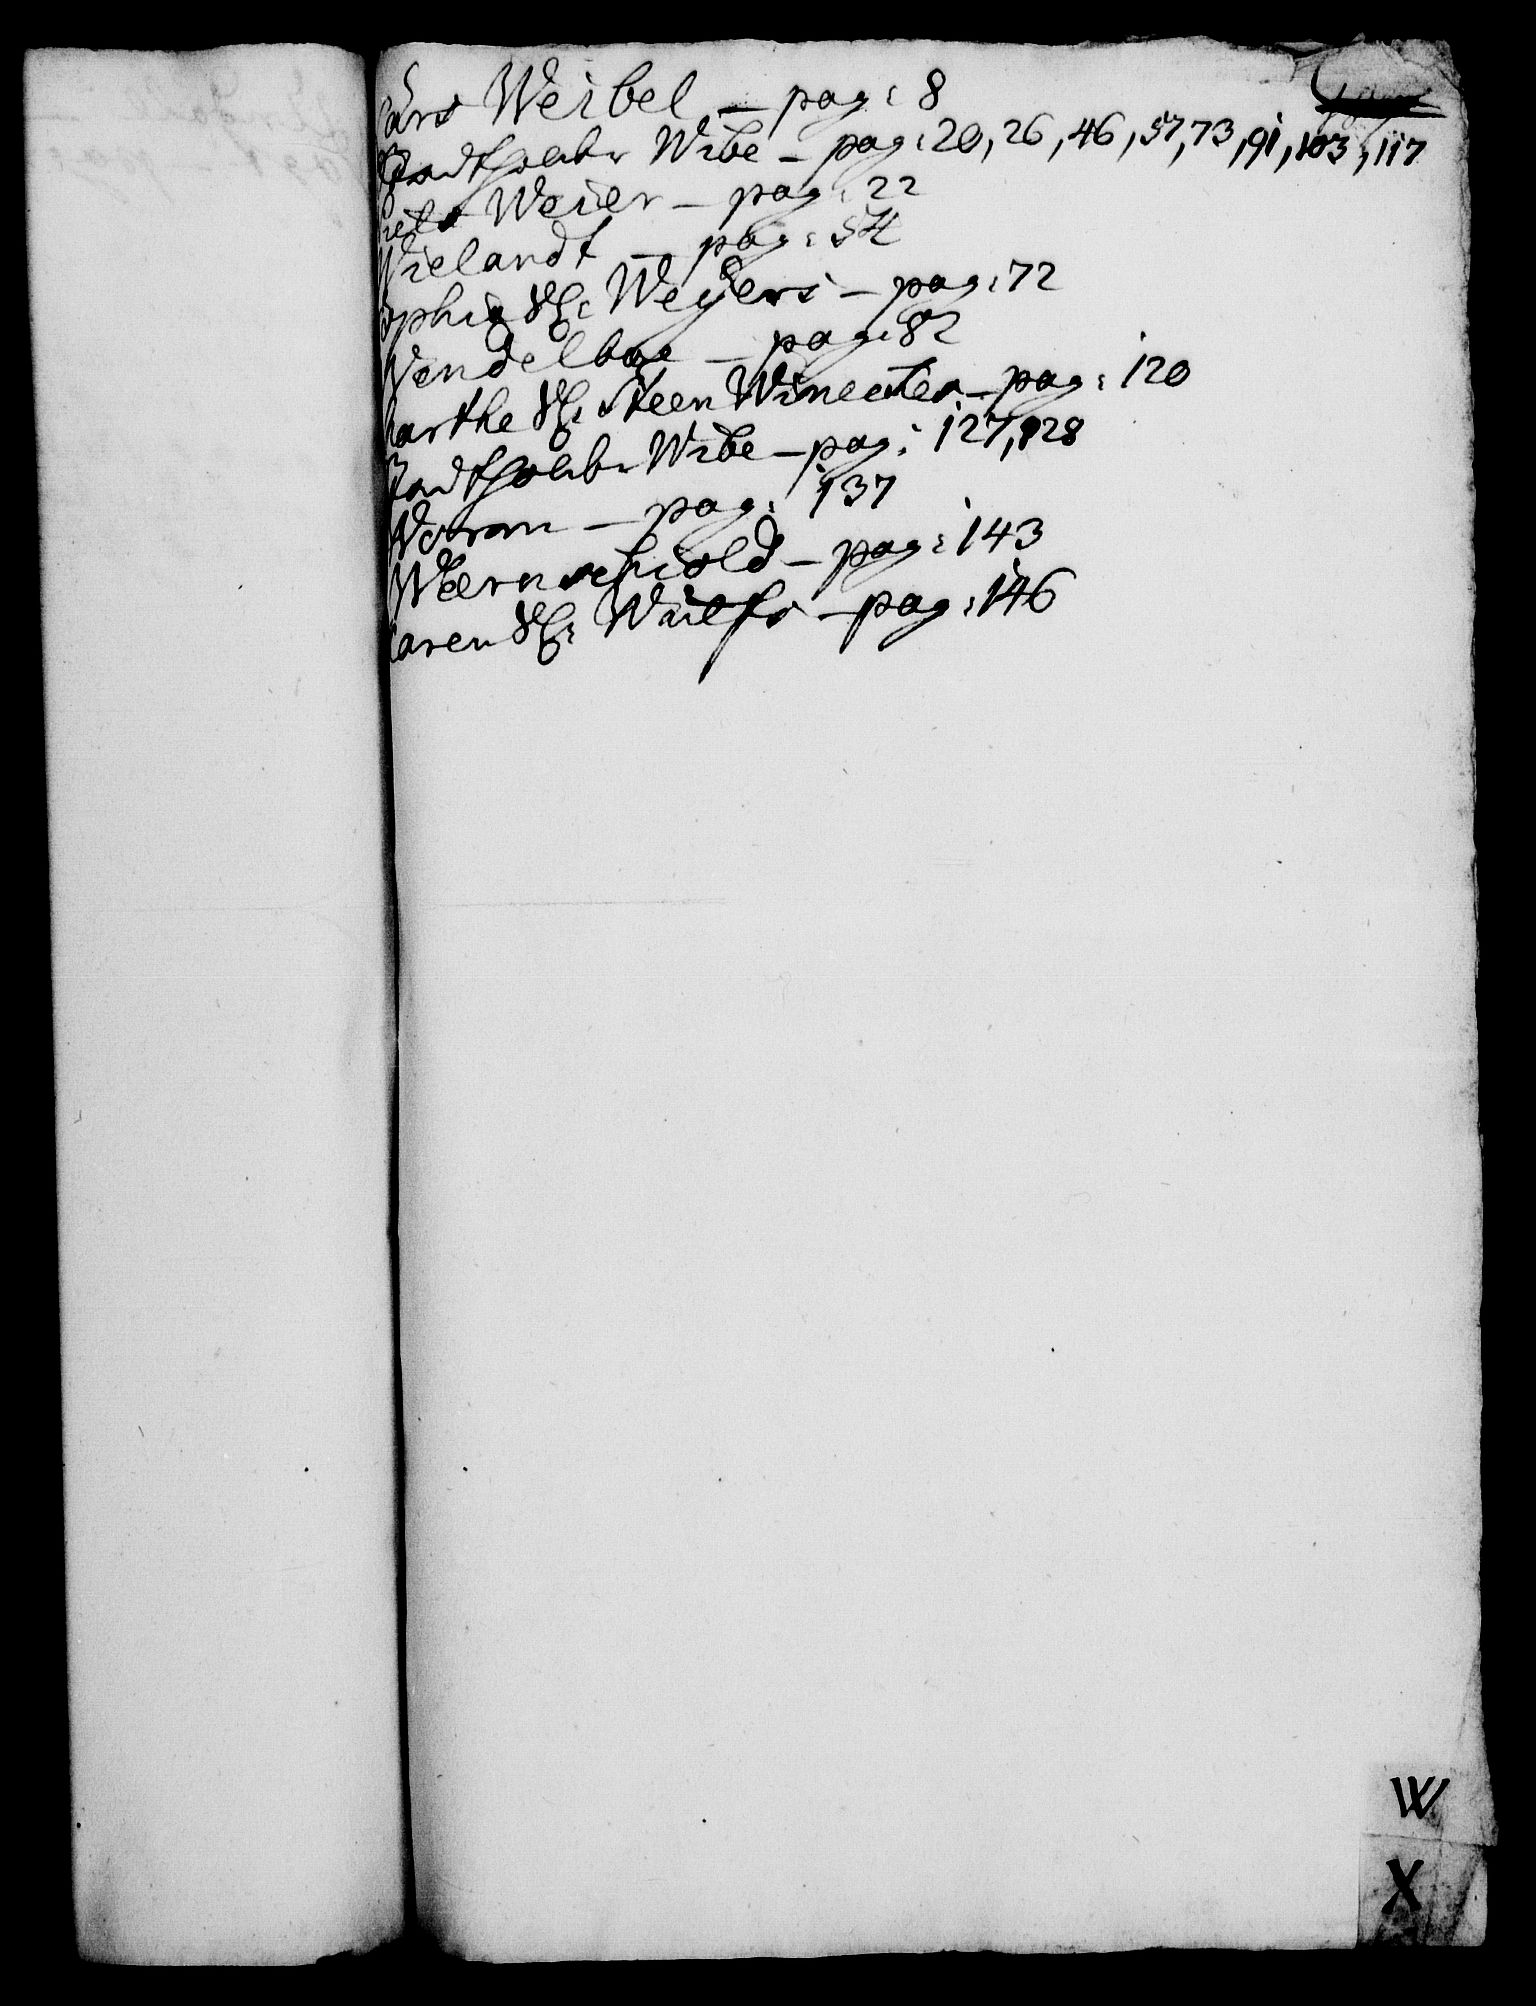 Lars Weibel – pag: 8
Stadtholder Wibe – pag: 20, 26, 46, 57, 73, 91, 103, 117
Weier – pag: 22
Wielandt – pag: 54
Sophia Sl: Weyers – pag: 72
Wendelboe – pag: 82
Marthe Sl: Steen – pag: 120
Stadtholder Wibe – pag: 127, 128
Worm – pag: 137
Wernschiold – pag: 143
Karen Sl: Wulfs – pag: 146
W
X